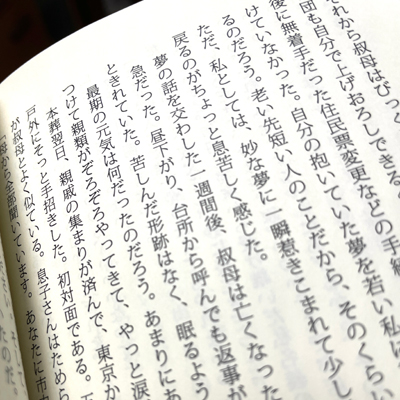 それから叔母はびっく
団も自分で上げおろしできる。
後に無着手だった住民票変更などの手続
けていなかった。自分の抱いていた夢を若い私に
るのだろう。老い先短い人のことだから、そのくらい
ただ、私としては、妙な夢に一瞬惹きこまれて少し
戻るのがちょっと息苦しく感じた。
夢の話を交わした一週間後、叔母は亡くなった
急だった。昼下がり、台所から呼んでも返事が
ときれていた。苦しんだ形跡はなく、眠るよう
最期の元気は何だったのだろう。あまりにあ
つけて親類がぞろぞろやってきて、やっと涙
本葬翌日、親戚の集まりが済んで、東京か
戸外にそっと手招きした。初対面である。
が叔母とよく似ている。息子さんはためら
母から全部聞いています。あなたに市内
たのだ。